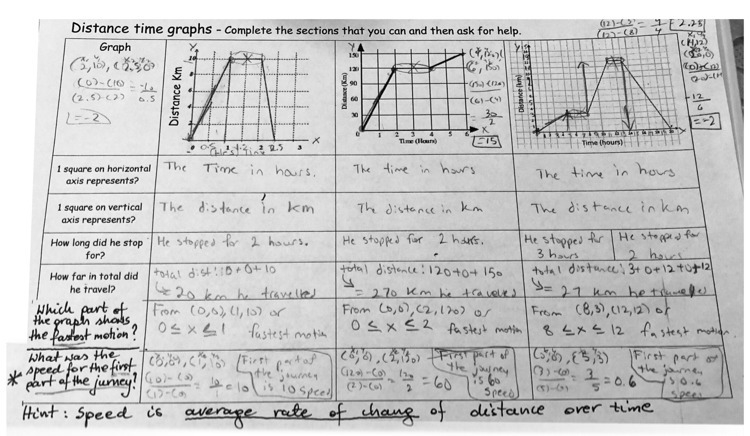 Distance time graphs - Complete the sections that you can and then ask for help.
Graph
= -2
Y
Distance Km
X
0.5
2
2.5
3
Y
Distance (Km)
150
120
90
60
30
0 1 2 3 4 5
X
Time (Hours)
= 15
Y
Distance (km)
X
Time (hours)
= 2.25
= -2
1 square on horizontal axis represents?
The Time in hours.
The time in hours
The time in hours
1 square on vertical axis represents?
The distance in km
The distance in km
The distance in km
How long did he stop for?
He stopped for 2 hours.
He stopped for 2 hours.
He stopped for 3 hours
He stopped for 2 hours
How far in total did he travel?
total dist: 10+0+10
= 20 km he travelled
total distance: 120+0+150
= 270 km he traveled
total distance: 3+0+12+0+12
= 27 km he traveled
Which part of the graph shows the fastest motion?
From (0,0), (1,10) or
0 ≤ x ≤ 1 fastest motion
From (0,0), (2,120) or
0 ≤ x ≤ 2 fastest motion
From (8,3), (12,12) or
8 ≤ x ≤ 12 fastest motion
* What was the speed for the first part of the jurney?
(10)-(0)
(1)-(0)
= 10
First part of the journey is 10 speed
(120)-(0)
(2)-(0)
= 120
2
= 60
First part of the journey is 60 speed
(3)-(0)
(5)-(0)
= 3
5
= 0.6
First part of the journey is 0.6 speed
Hint : Speed is average rate of chang of distance over time